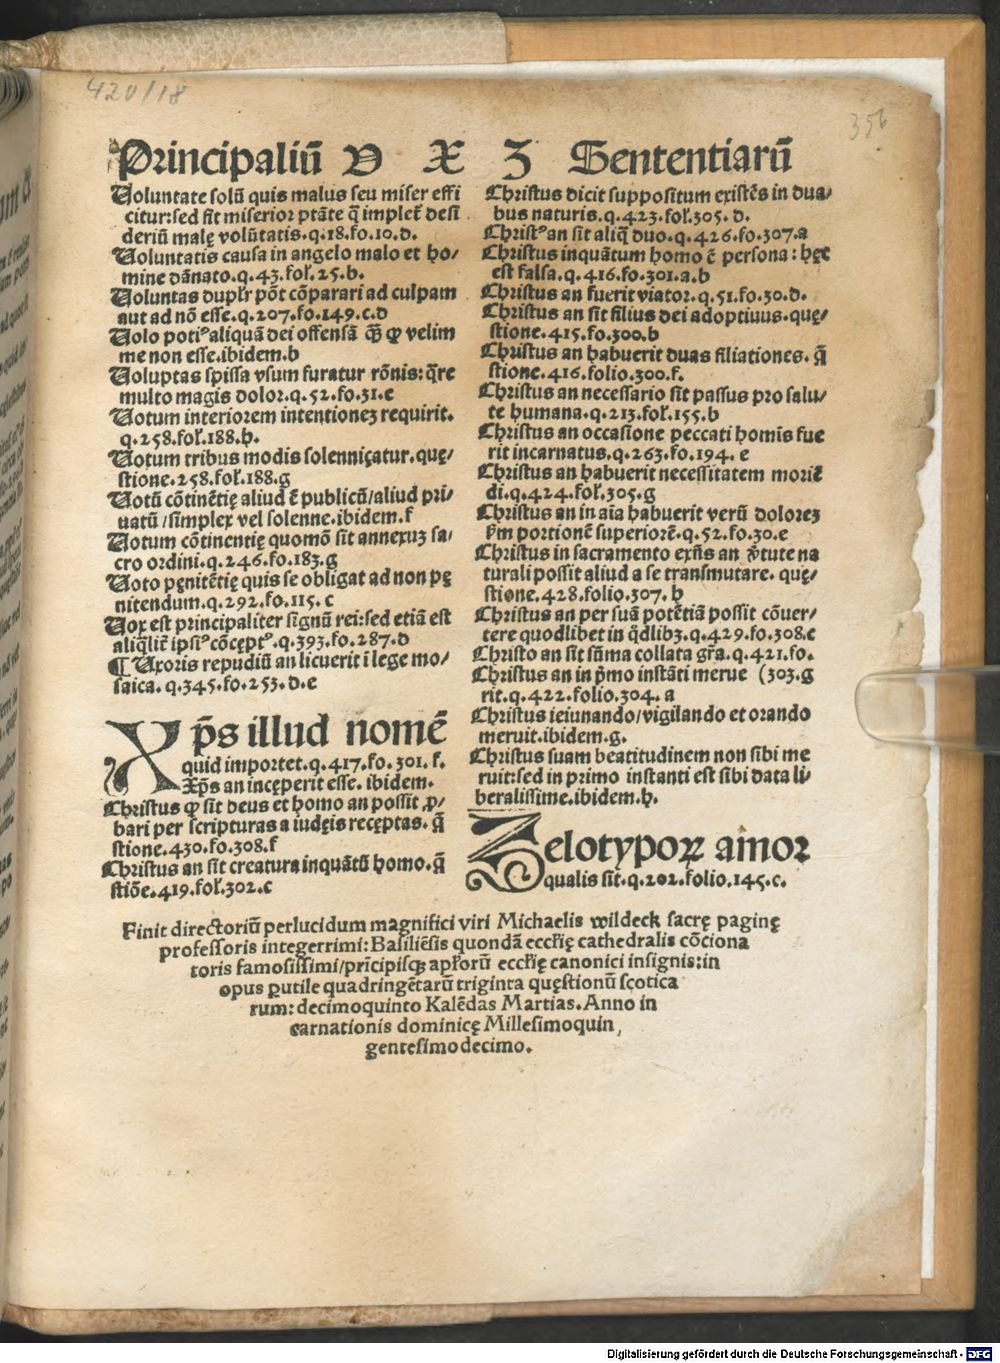 420/18
356
Principaliū V X Z Sententiarū
Voluntate solū quis malus seu miser effi
citur:sed fit miserior ptāte q̄ implet̉ desi
deriū malę volūtatis.q.18.fo.10.d.
Voluntatis causa in angelo malo et ho/
mine dānato.q.43.fol̉.25.b.
Voluntas duplr̉ pōt cōparari ad culpam
aut ad nō esse.q.207.fo.149.c.d
Volo potiꝰ aliquā dei offensā q̄ꝫ ꝙ velim
me non esse.ibidem.b
Voluptas spissa vsum furatur rōnis:q̄re
multo magis dolor.q.52.fo.31.e
Votum interiorem intentioneꝫ requirit.
q.258.fol̉.188.h.
Votum tribus modis solenniçatur.quę/
stione.258.fol̉.188.g
Votū cōtinētię aliud ē publicū/aliud pri/
uatū/simplex vel solenne.ibidem.f
Votum cōtinentię quomō sit annexuꝫ sa/
cro ordini.q.246.fo.183.g
Voto pęnitētię quis se obligat ad non pę
nitendum.q.292.fo.115.c
Vox est principaliter signū rei:sed etiā est
aliq̄lit̉ ipsiꝰ cōcęptꝰ.q.393.fo.287.d
¶ Vxoris repudiū an licuerit ī lege mo/
saica.q.345.fo.253.d.e
Xp̄s illud nomē
quid importet.q.417.fo.301.f.
Xp̄s an incęperit esse.ibidem.
Christus ꝙ sit deus et homo an possit ꝓ/
bari per scripturas a iudęis recęptas.q̄
stione.430.fo.308.f
Christus an sit creatura inquātū homo.q̄
stiōe.419.fol̉.302.c
Christus dicit suppositum existēs in dua/
bus naturis.q.423.fol̉.305.d.
Christꝰ an sit aliq̄ duo.q.426.fo.307.a
Christus inquātum homo ē persona:hęc
est falsa.q.416.fo.301.a.b
Christus an fuerit viator.q.51.fo.30.d.
Christus an sit filius dei adoptiuus.quę/
stione.415.fo.300.b
Christus an habuerit duas filiationes.q̄
stione.416.folio.300.f.
Christus an necessario sit passus pro salu/
te humana.q.213.fol̉.155.b
Christus an occasione peccati homīs fue
rit incarnatus.q.263.fo.194.e
Christus an habuerit necessitatem moriē
di.q.424.fol̉.305.g
Christus an in aīa habuerit verū doloreꝫ
ẜm portionē superiorē.q.52.fo.30.e
Christus in sacramento exñs an v̉tute na
turali possit aliud a se transmutare.quę/
stione.428.folio.307.h
Christus an per suā potētiā possit cōuer/
tere quodlibet in q̄dlibꝫ.q.429.fo.308.c
Christo an sit sūma collata gr̄a.q.421.fo.
Christus an in p̄mo instāti merue (303.g
rit.q.422.folio.304.a
Christus ieiunando/vigilando et orando
meruit.ibidem.g.
Christus suam beatitudinem non sibi me
ruit:sed in primo instanti est sibi data li/
beralissime.ibidem.h.
Zelotypoꝝ amor
qualis sit.q.202.folio.145.c.
Finit directoriū perlucidum magnifici viri Michaelis wildeck sacrę paginę
professoris integerrimi:Basiliēsis quondā eccl̉ię cathedralis cōciona
toris famosissimi/prīcipisqꝫ apl̉orū eccl̉ię canonici insignis:in
opus ꝑutile quadringētarū triginta quęstionū scotica
rum:decimoquinto Kalēdas Martias.Anno in
carnationis dominicę Millesimoquin
gentesimodecimo.
Digitalisierung gefördert durch die Deutsche Forschungsgemeinschaft - DFG